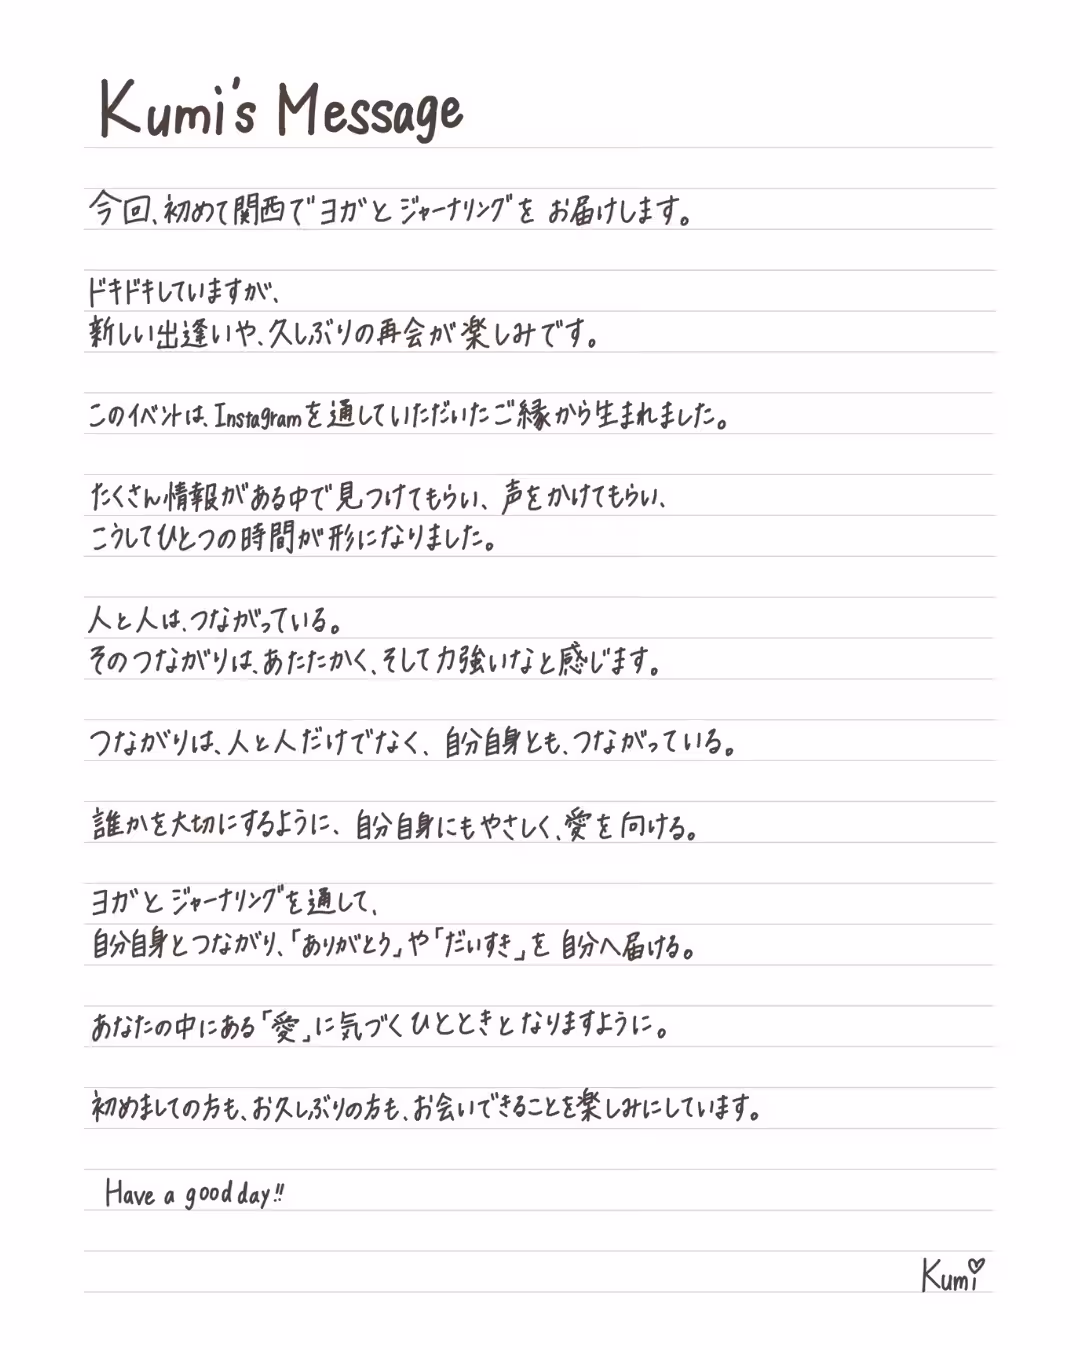 Kumi's Message
今回、初めて関西でヨガとジャーナリングを お届けします。
ドキドキしていますが、
新しい出逢いや、久しぶりの再会が楽しみです。
このイベントは、Instagramを通していただいたご縁から生まれました。
たくさん情報がある中で見つけてもらい、声をかけてもらい、
こうしてひとつの時間が形になりました。
人と人は、つながっている。
そのつながりは、あたたかく、そして力強いなと感じます。
つながりは、人と人だけでなく、自分自身とも、つながっている。
誰かを大切にするように、自分自身にもやさしく、愛を向ける。
ヨガとジャーナリングを通して、
自分自身とつながり、「ありがとう」や「だいすき」を 自分へ届ける。
あなたの中にある「愛」に気づくひとときとなりますように。
初めましての方も、お久しぶりの方も、お会いできることを楽しみにしています。
Have a good day!!
Kumi♡